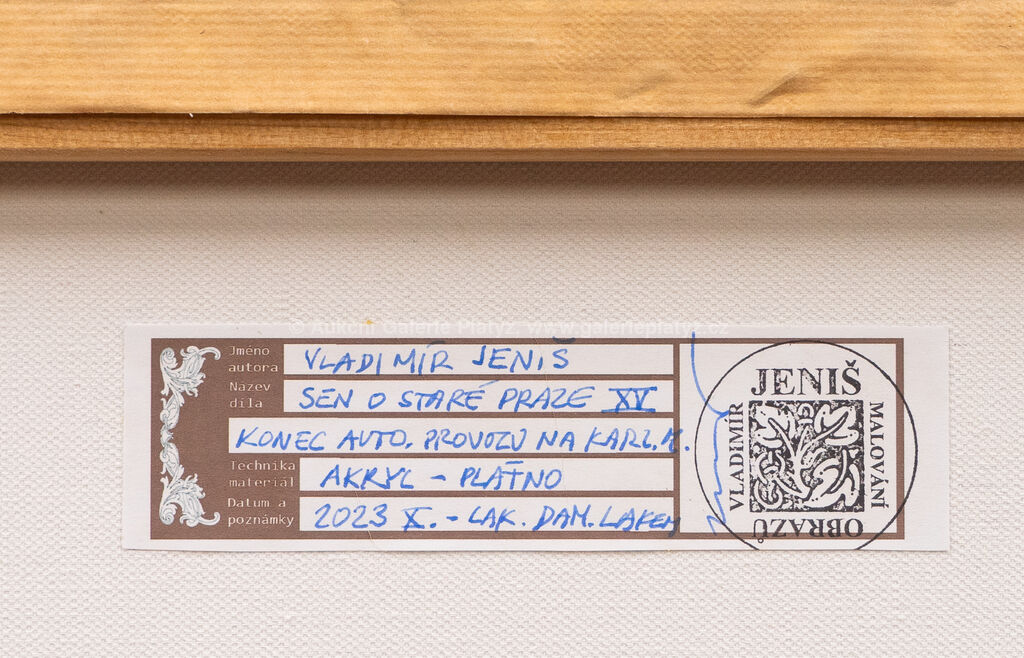 © Aukční Galerie Platýz, www.galerieplatyz.cz
Jméno autora
VLADIMÍR JENIŠ
Název díla
SEN O STARÉ PRAZE XV
KONEC AUTO. PROVOZU NA KARL. M.
Technika materiál
AKRYL - PLÁTNO
Datum a poznámky
2023 X. - LAK. DAM. LAKEM
JENIŠ
VLADIMÍR
MALOVÁNÍ
OBRAZŮ